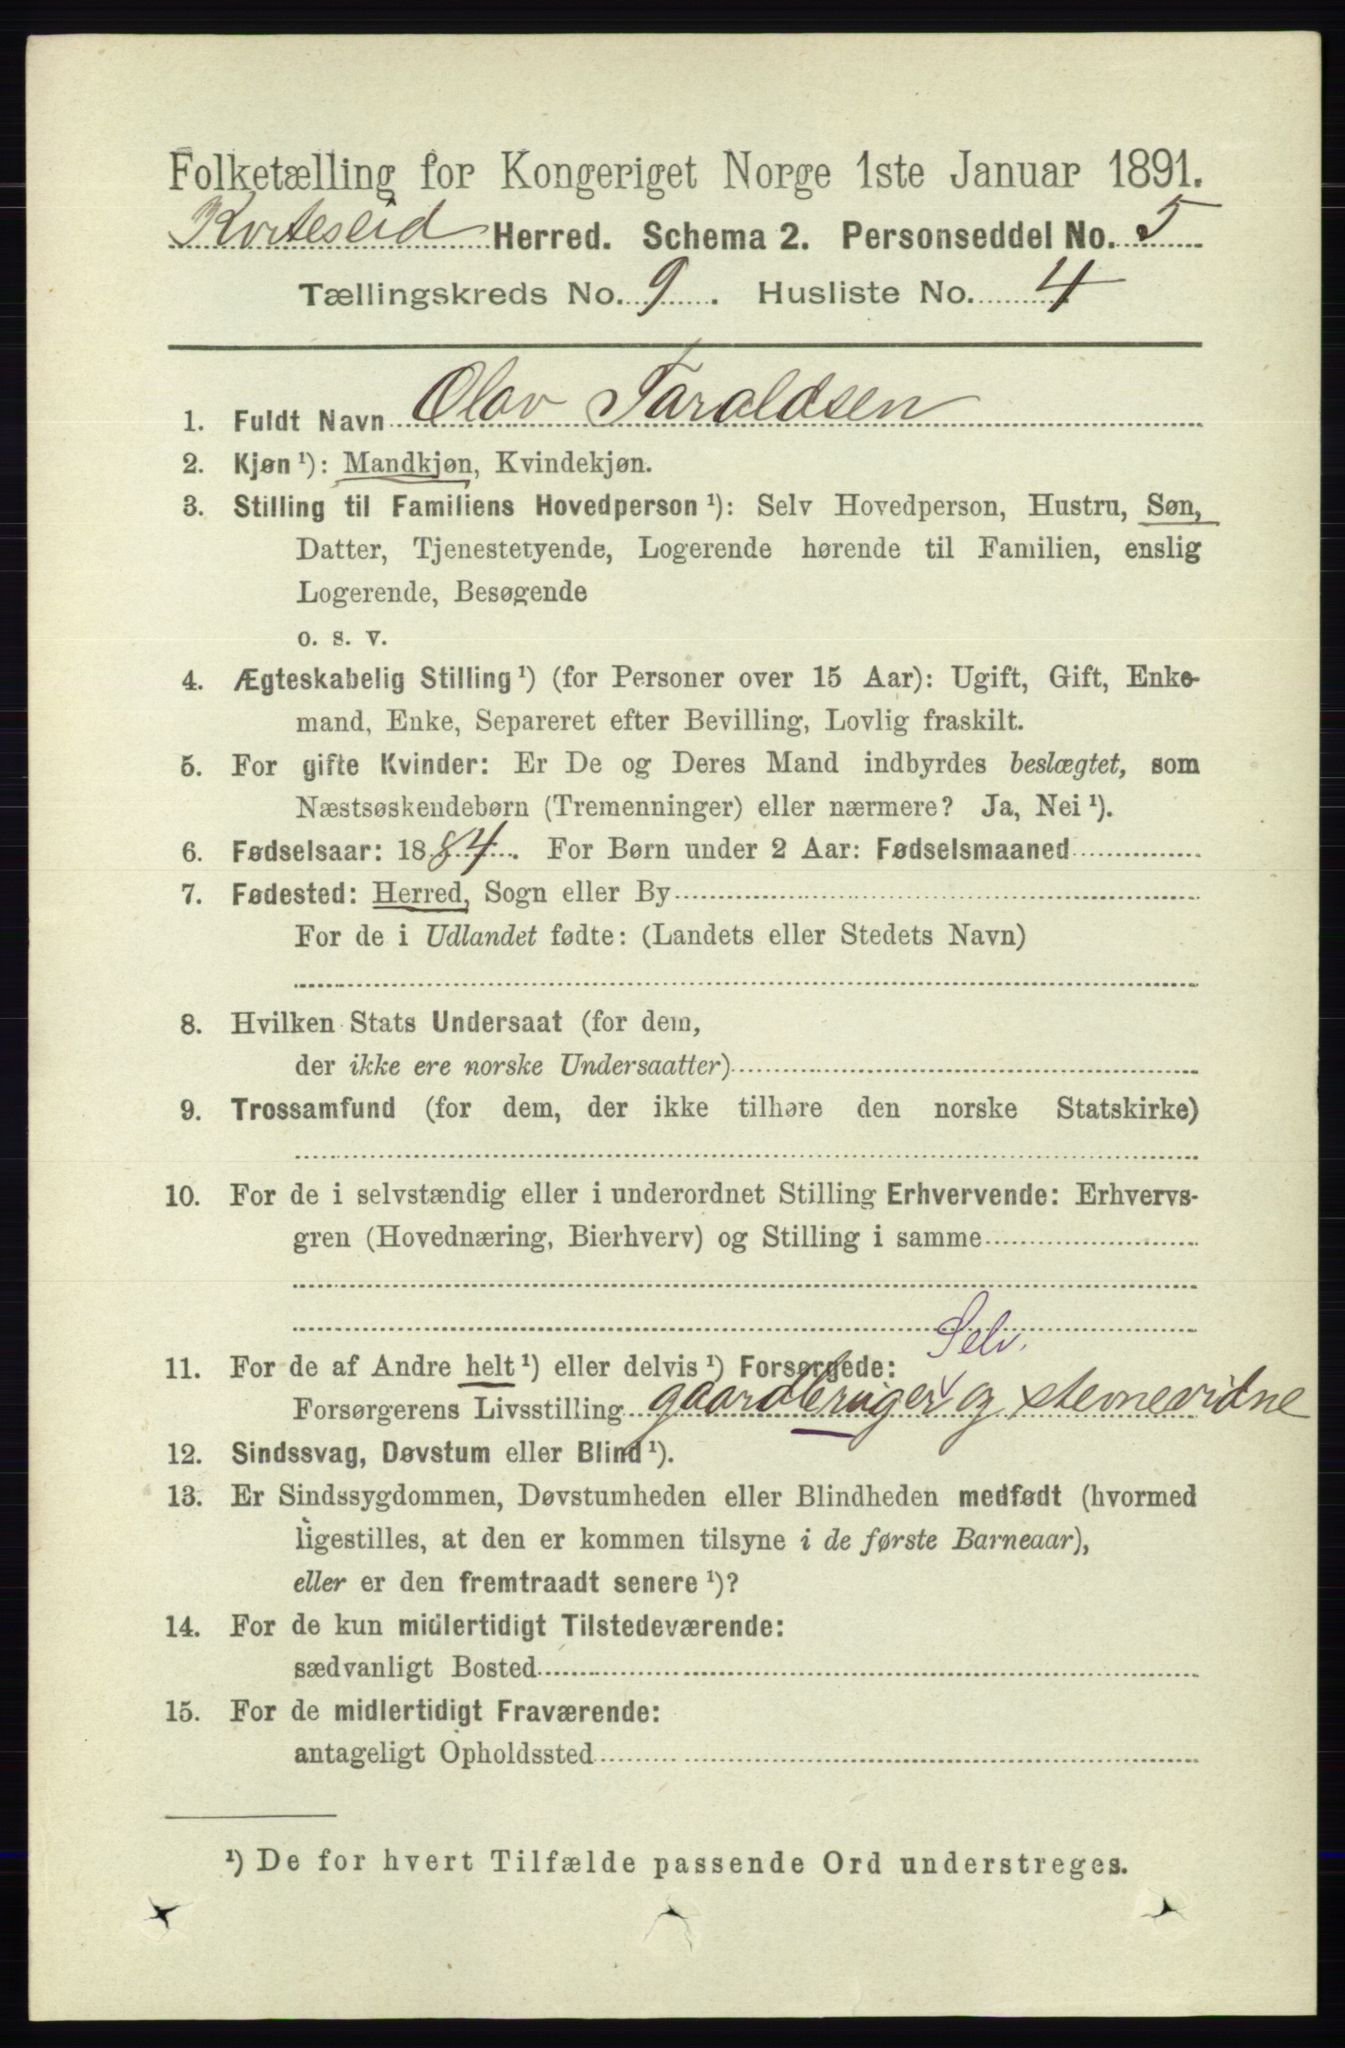 Folketælling for Kongeriget Norge 1ste Januar 1891.
Kviteseid Herred. Schema 2. Personseddel No. 5
Tællingskreds No. 9. Husliste No. 4
1. Fuldt Navn Olav Taraldsen
2. Kjøn ¹): Mandkjøn, Kvindekjøn.
3. Stilling til Familiens Hovedperson ¹): Selv Hovedperson, Hustru, Søn,
Datter, Tjenestetyende, Logerende hørende til Familien, enslig
Logerende, Besøgende
o. s. v.
4. Ægteskabelig Stilling ¹) (for Personer over 15 Aar): Ugift, Gift, Enke-
mand, Enke, Separeret efter Bevilling, Lovlig fraskilt.
5. For gifte Kvinder: Er De og Deres Mand indbyrdes beslægtet, som
Næstsøskendebørn (Tremenninger) eller nærmere? Ja, Nei ¹).
6. Fødselsaar: 1884. For Børn under 2 Aar: Fødselsmaaned
7. Fødested: Herred, Sogn eller By
For de i Udlandet fødte: (Landets eller Stedets Navn)
8. Hvilken Stats Undersaat (for dem,
der ikke ere norske Undersaatter)
9. Trossamfund (for dem, der ikke tilhøre den norske Statskirke)
10. For de i selvstændig eller i underordnet Stilling Erhvervende: Erhvervs-
gren (Hovednæring, Bierhverv) og Stilling i samme
Selv.
11. For de af Andre helt ¹) eller delvis ¹) Forsørgede:
Forsørgerens Livsstilling gaardbruger og stemevidne
12. Sindssvag, Døvstum eller Blind ¹).
13. Er Sindssygdommen, Døvstumheden eller Blindheden medfødt (hvormed
ligestilles, at den er kommen tilsyne i de første Barneaar),
eller er den fremtraadt senere ¹)?
14. For de kun midlertidigt Tilstedeværende:
sædvanligt Bosted
15. For de midlertidigt Fraværende:
antageligt Opholdssted
¹) De for hvert Tilfælde passende Ord understreges.